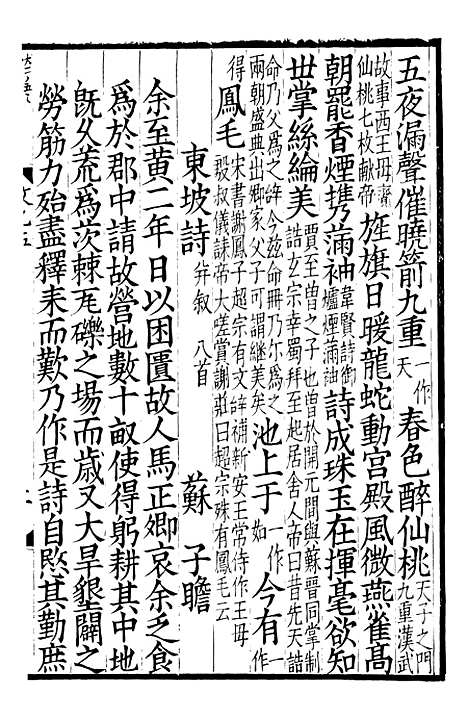 五夜漏聲催曉箭九重一作天春色醉仙桃天子之門九重漢武
故事西王母齎仙桃七枚献帝旌旗日暖龍蛇動宮殿風微燕雀高
朝罷香煙携滿袖韋賢詩御爐煙滿袖詩成珠玉在揮毫欲知
世掌絲綸美賈至曾之子也曽於開元間與蘇晉同掌制誥玄宗幸蜀拜至起居舍人帝曰昔先天誥
命乃父爲之辝今兹命冊乃尔爲之兩朝盛典出卿家父子可謂継美矣池上于一作如今有一作
得鳳毛宋書謝鳳子超宗有文辝補新安王常侍作王母殷叔儀誄帝大嗟賞謝莊曰超宗殊有鳳毛云
東坡詩并叙八首 蘇子瞻
余至黄二年日以困匱故人馬正卿哀余乏食
爲於郡中請故營地數十畝使得躬耕其中地
旣久荒爲茨棘瓦礫之場而歳又大旱墾闢之
勞筋力殆盡釋耒而歎乃作是詩自愍其勤庶